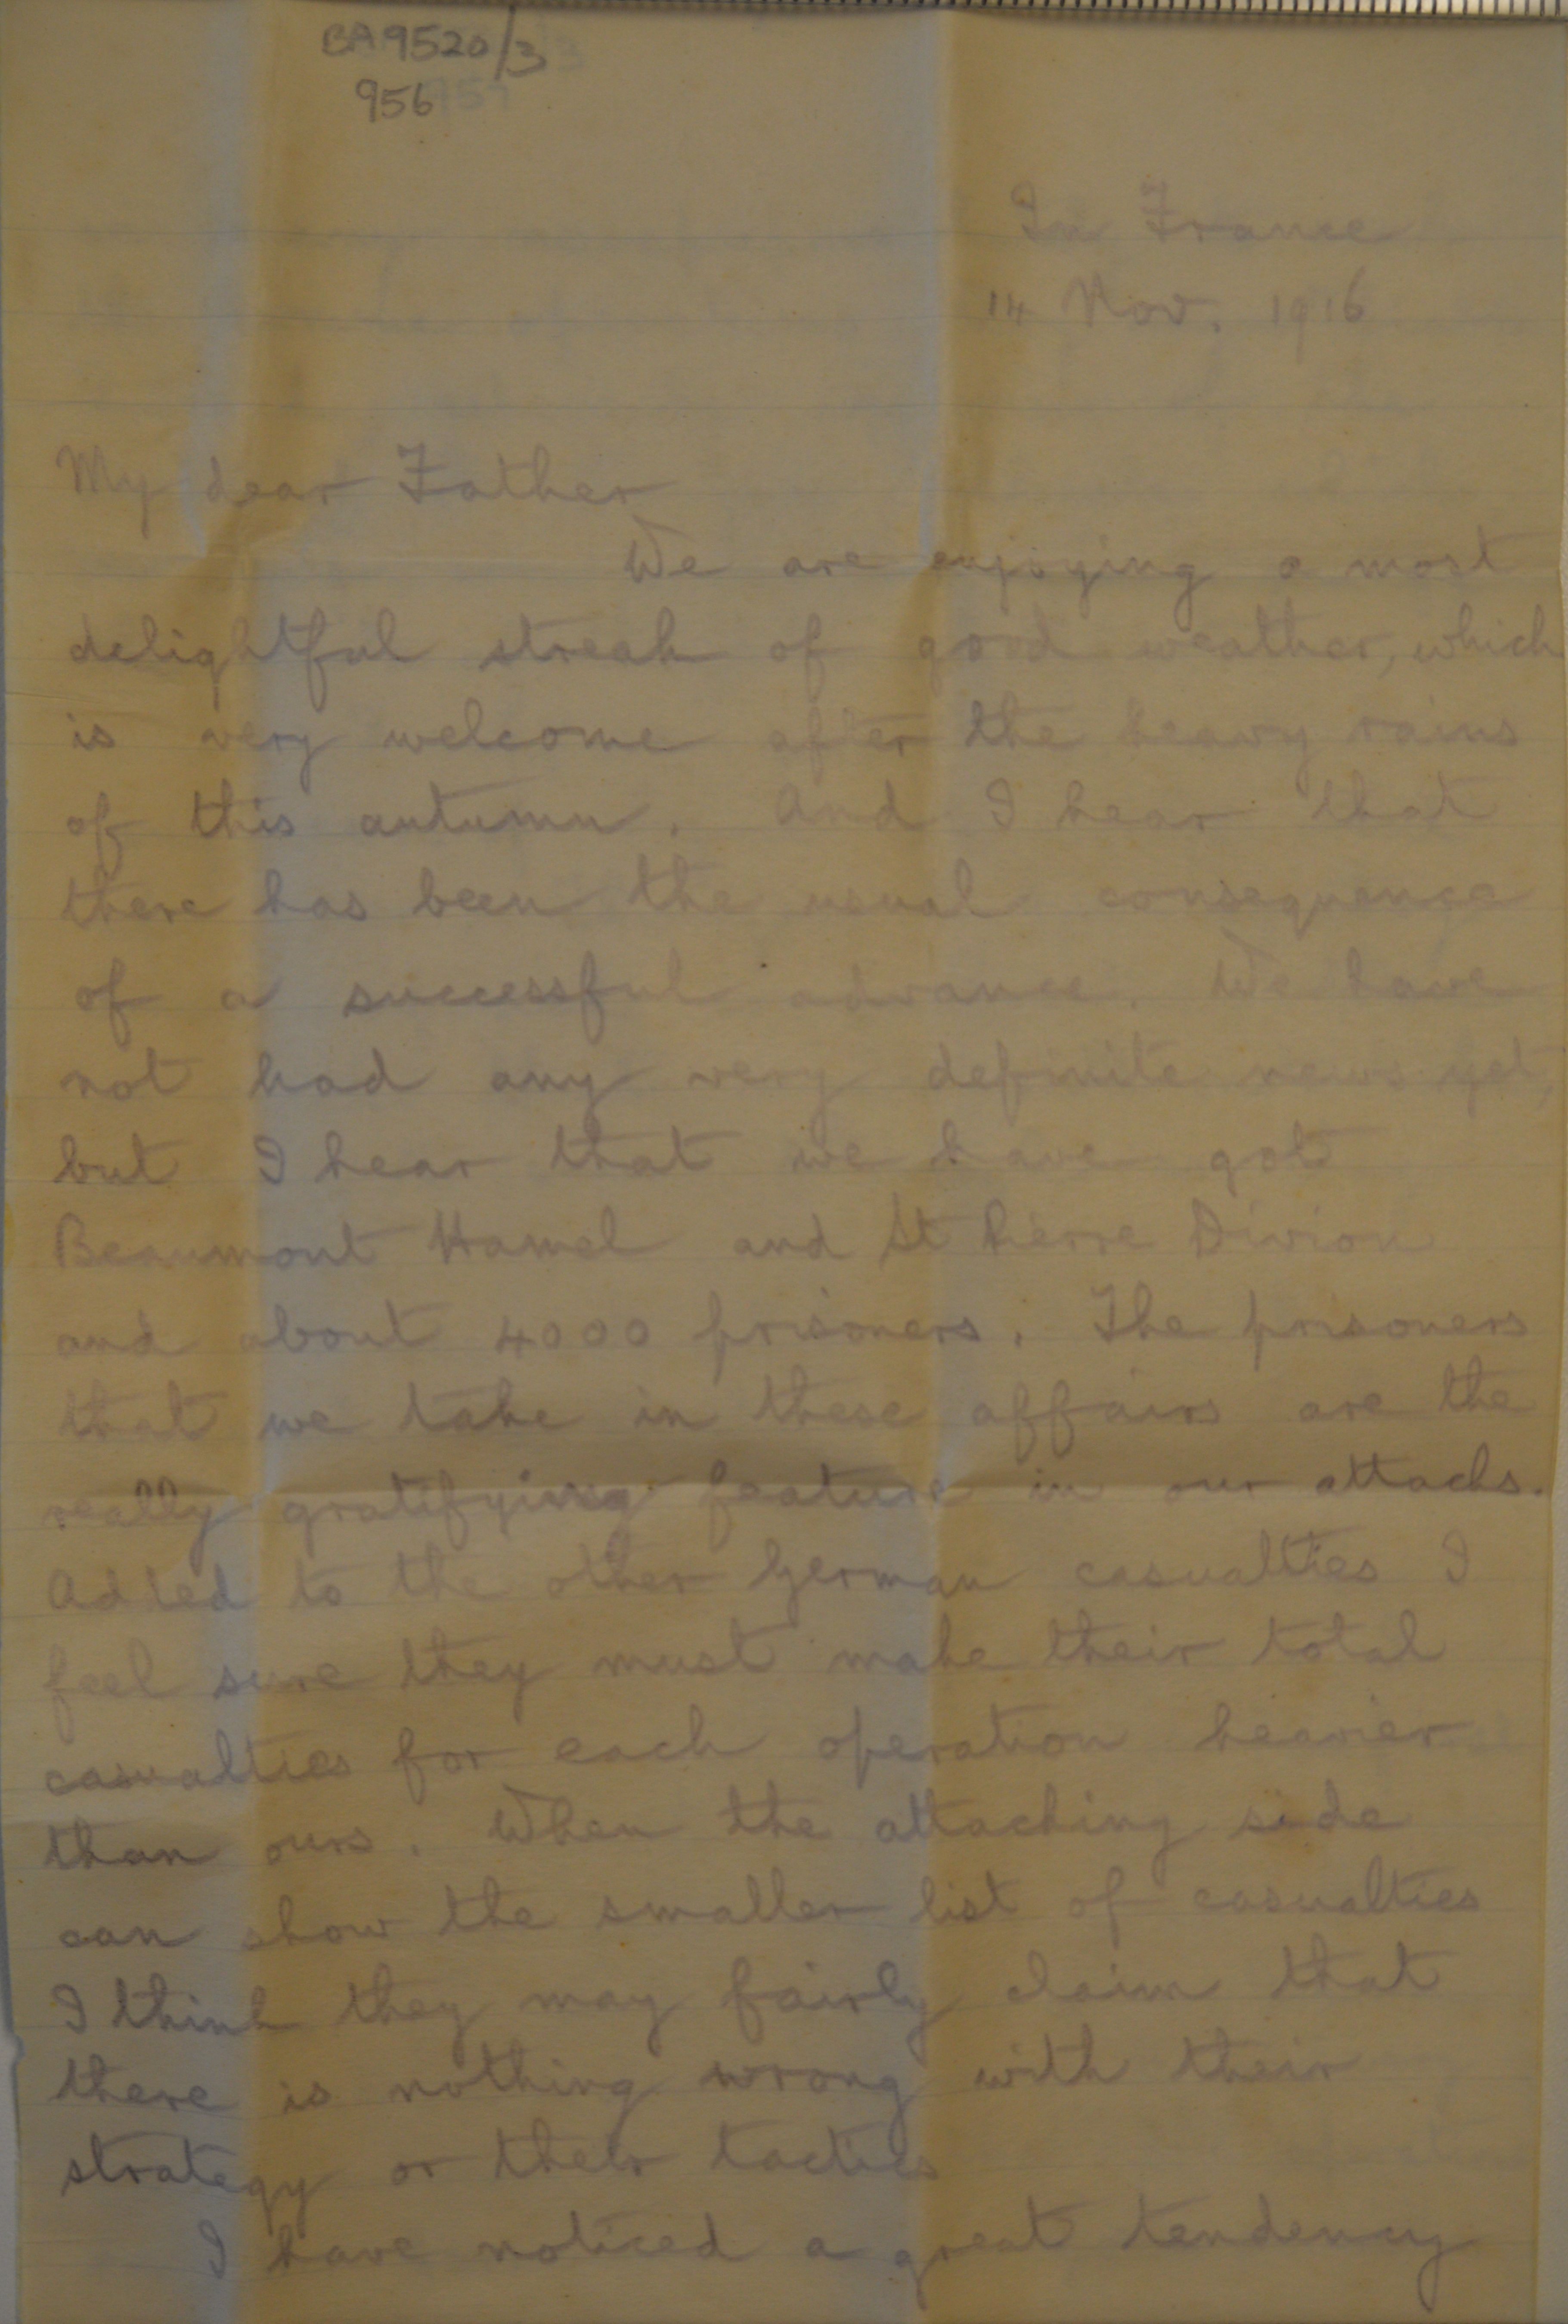 BA9520/3
956
In France
14 Nov. 1916
My dear Father
We are enjoying a most
delightful streak of good weather, which
is very welcome after the heavy rains
of this autumn. And I hear that
there has been the usual consequence
of a successful advance. We have
not had any very definite news yet,
but I hear that we have got
Beaumont Hamel and St Pierre Divion
and about 4000 prisoners. The prisoners
that we take in these affairs are the
really gratifying feature in our attacks.
Added to the other German casualties I
feel sure they must make their total
casualties for each operation heavier
than ours. When the attacking side
can show the smaller list of casualties
I think they may fairly claim that
there is nothing wrong with their
strategy or their tactics
I have noticed a great tendency